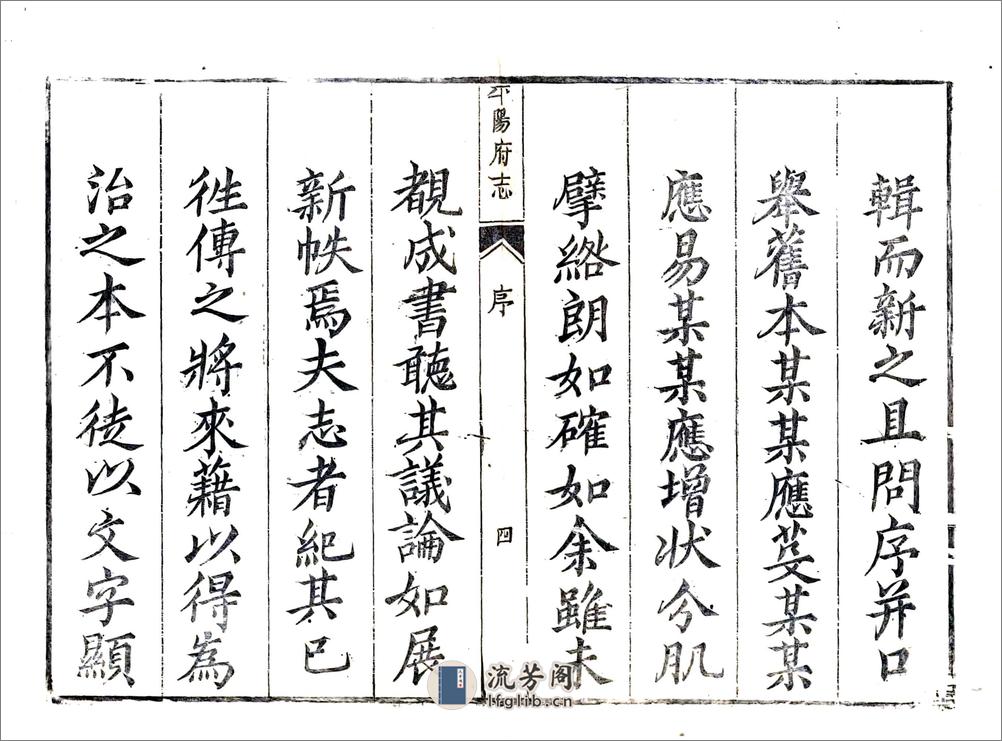 輯而新之且問序并口
舉舊本某某應芟某某
應易某某應增狀分肌
擘綹朗如確如余雖未
平陽府志
序
四
覩成書聽其議論如展
新帙焉夫志者紀其已
徃傳之將來藉以得為
治之本不徒以文字顯
流芳阁
lfglib.cn